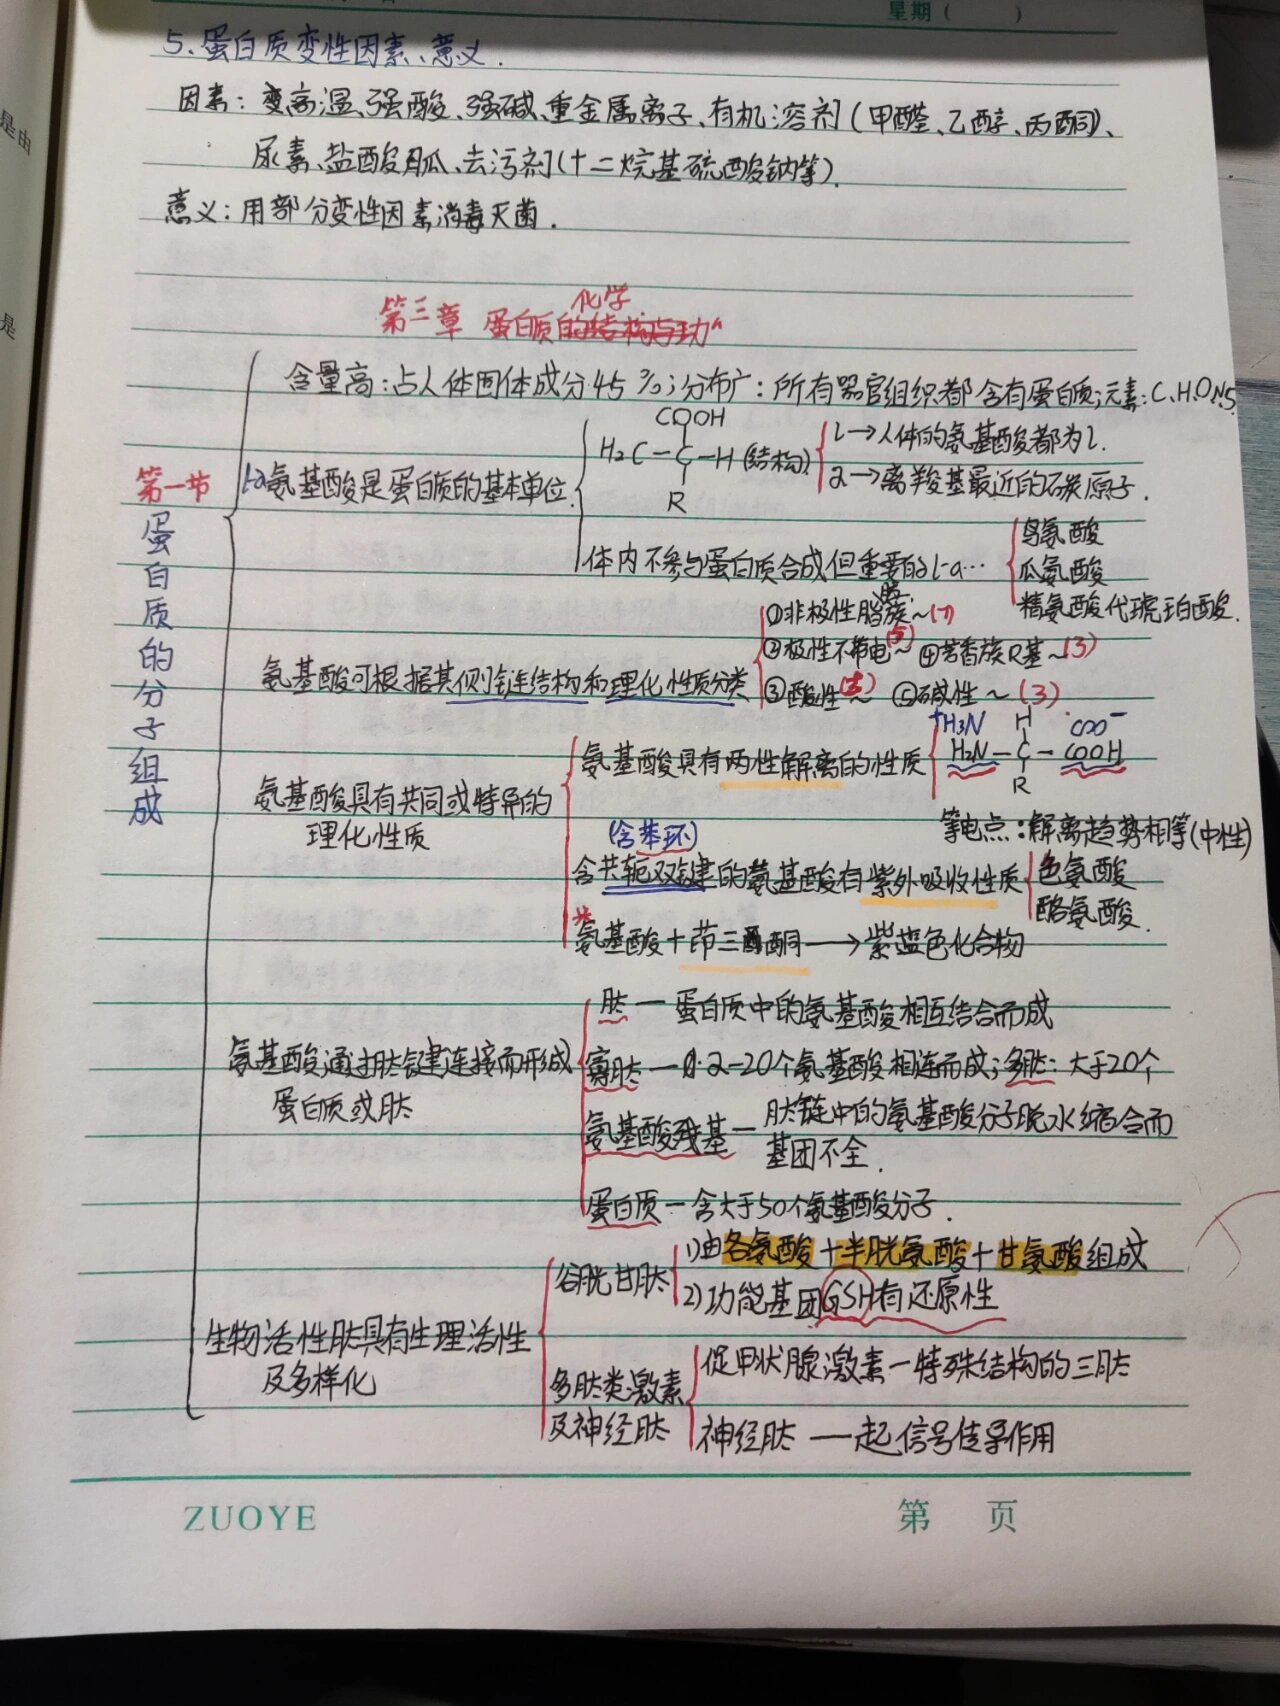 星期( )
是由
是
5、蛋白质变性因素、意义.
因素：变高温、强酸、强碱、重金属离子、有机溶剂(甲醛、乙醇、丙酮)、
尿素、盐酸胍、去污剂(十二烷基硫酸钠等).
意义：用部分变性因素消毒灭菌.
化学
第三章 蛋白质的结构与功
第一节
蛋白质的分子组成
含量高：占人体固体成分45%；分布广：所有器官组织都含有蛋白质；元素：C、H、O、N、S
L-α氨基酸是蛋白质的基本单位
COOH
H₂C-C-H(结构)
R
L→人体的氨基酸都为L.
α→离羧基最近的碳原子.
体内不参与蛋白质合成但重要的L-α…
鸟氨酸
瓜氨酸
精氨酸代琥珀酸.
氨基酸可根据其侧链结构和理化性质分类
①非极性脂肪族~(7)
②极性不带电~(5) ④芳香族R基~(3)
③酸性~ ⑤碱性~(3)
氨基酸具有共同或特异的
理化性质
氨基酸具有两性解离的性质
⁺H₃N H COO⁻
H₂N-C-COOH
R
等电点：解离趋势相等(中性)
(含苯环)
含共轭双键的氨基酸有紫外吸收性质
色氨酸
酪氨酸.
氨基酸+茚三酮→紫蓝色化合物
氨基酸通过肽键连接而形成
蛋白质或肽
肽—蛋白质中的氨基酸相互结合而成
寡肽—由2-20个氨基酸相连而成；多肽：大于20个
氨基酸残基—肽链中的氨基酸分子脱水缩合而
基团不全.
蛋白质—含大于50个氨基酸分子.
生物活性肽具有生理活性
及多样化
谷胱甘肽
1)由各氨酸+半胱氨酸+甘氨酸组成
2)功能基团GSH有还原性
多肽类激素
及神经肽
促甲状腺激素—特殊结构的三肽
神经肽—起信号传导作用
ZUOYE
第 页